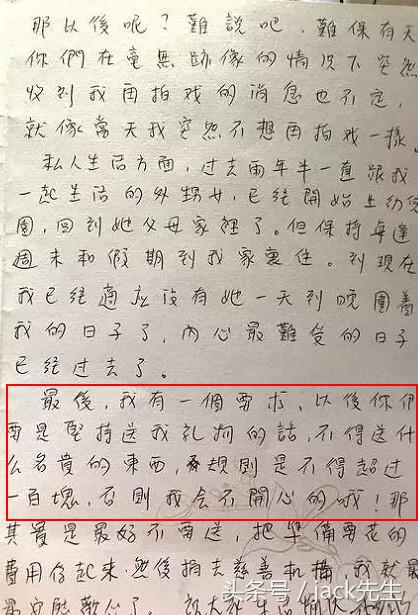 那以後呢？難說吧，難保有天
你們在毫無跡像的情況下突然
收到我再拍戏的消息也不定，
就像當天我突然不想再拍戏一樣。
私人生活方面，过去兩年半一直跟我
一起生活的外甥女，已經開始上幼稚
園，回到她父母家裡了。但保持每逢
週末和假期到我家裏住。到現在
我已經適应没有她一天到晚圍著
我的日子了，內心最難受的日子
已經过去了。
最後，我有一個要求，以後你們
要是堅持送我礼物的話，不得送什
么名貴的東西，規則是不得超过
一百塊，否則我会不開心的哦！那
其實是最好不要送，把準備要花的
費用存起来，然後捐去慈善机構，我就最
头条号/jack先生